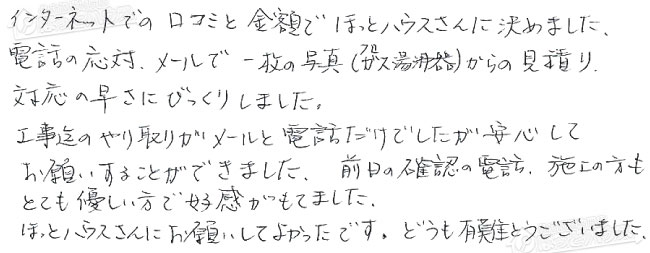 インターネットでの口コミと金額でほっとハウスさんに決めました、
電話の応対、メールで一枚の写真(ガス湯沸器)からの見積り、
対応の早さにびっくりしました。
工事迄のやり取りがメールと電話だけでしたが安心して
お願いすることができました、前日の確認の電話、施工の方も
とても優しい方で好感がもてました、
ほっとハウスさんにお願いしてよかったです。どうも有難とうございました、